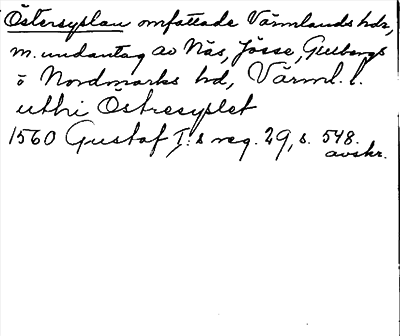 Östersyslan omfattade Värmlands hdr,
m. undantag av Näs, Jösse, Gillbergs
o Nordmarks hd, Värml. l.
uthi Östresyslet
1560 Gustaf I:s reg. 29, s. 548.
avskr.